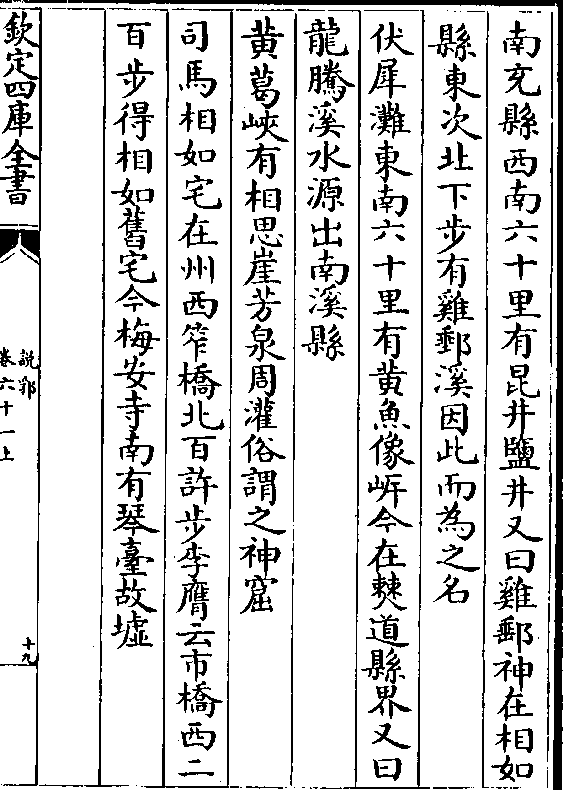 南充縣西南六十里有昆井鹽井又曰雞郵神在相如
縣東次北下步有雞郵溪因此而為之名
伏犀灘東南六十里有黃魚像岍今在僰道縣界又曰
龍騰溪水源出南溪縣
黃葛峽有相思崖芳泉周灌俗謂之神窟
司馬相如宅在州西笮橋北百許步李膺云市橋西二
百步得相如舊宅今梅安寺南有琴臺故墟
欽定四庫全書
說郛
卷六十一上
十九